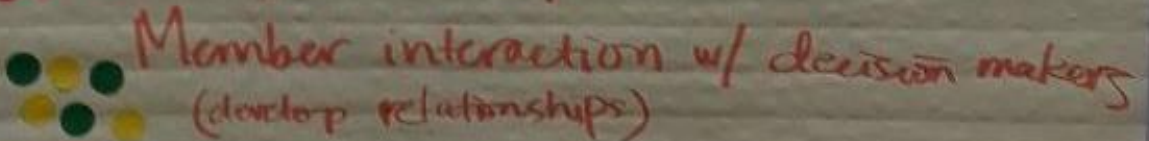 Member interaction w/ decision makers
(develop relationships)